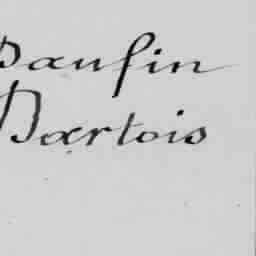 Dausin
Dartois